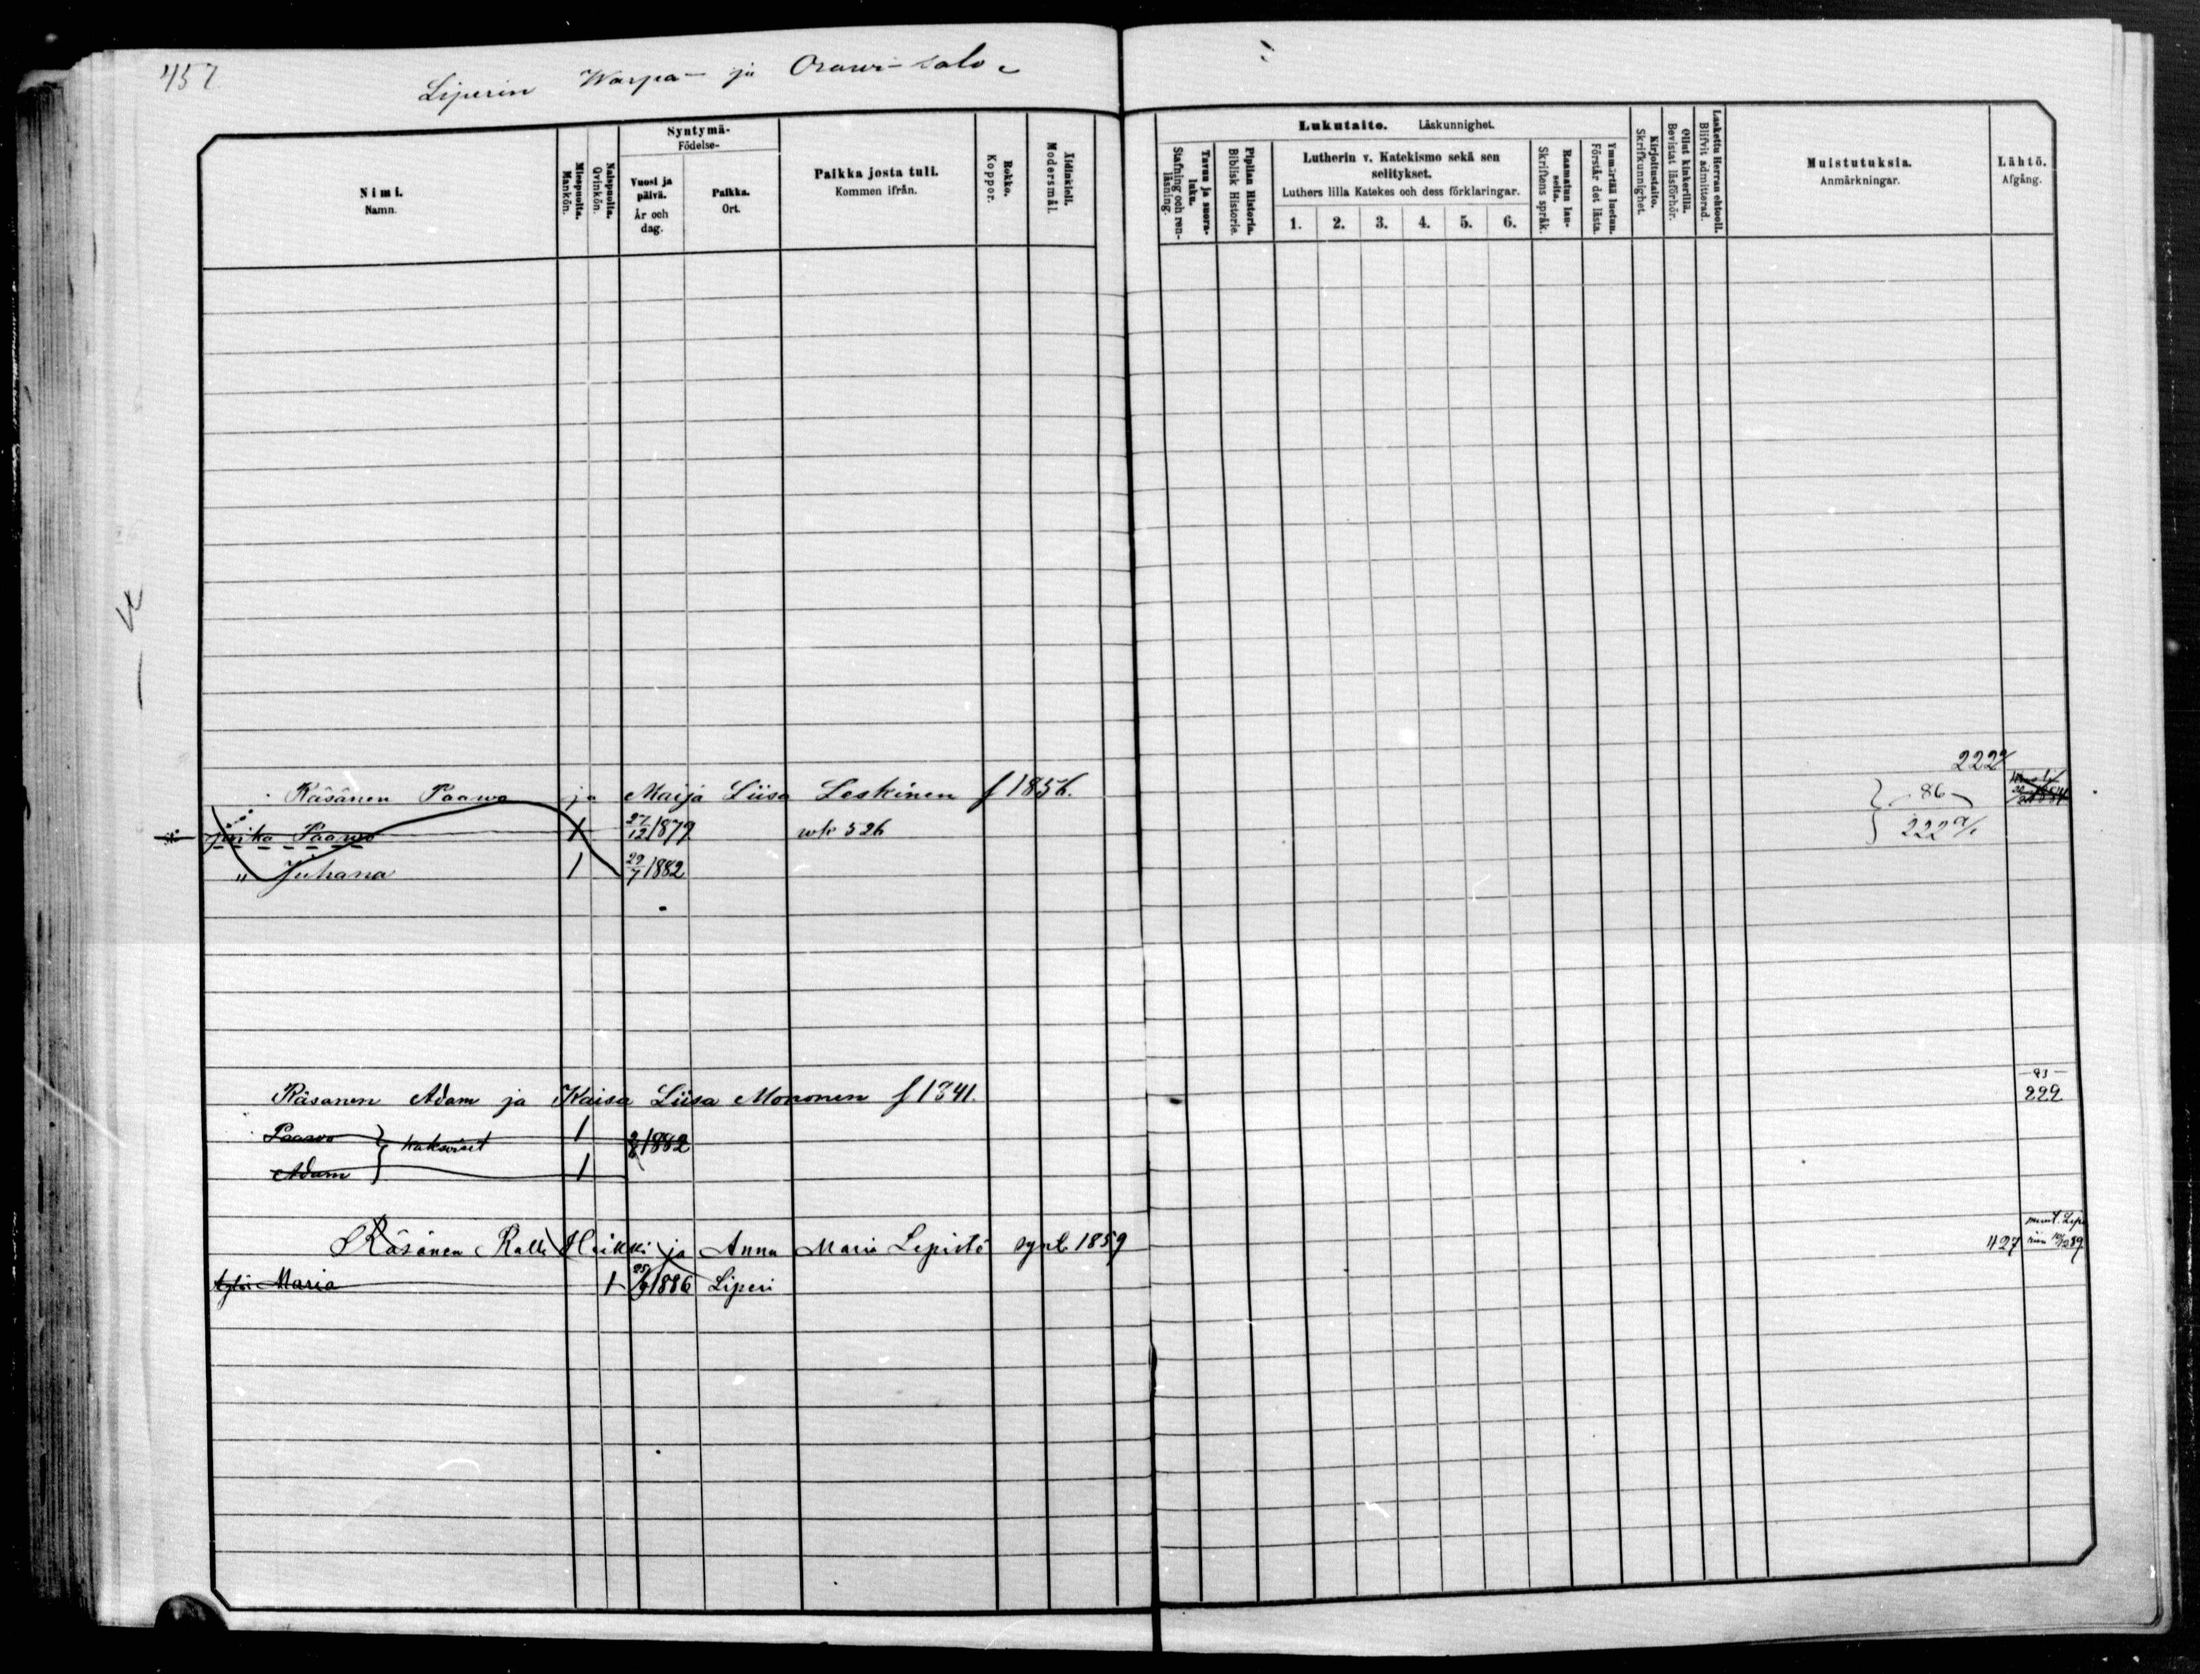 457
Liperin Warpa- ja Orawi-salo
Nimi. Namn.
Miespuolta. Mankön.
Naispuolta. Qvinkön.
Syntymä- Födelse-
Vuosi ja päivä. År och dag.
Paikka. Ort.
Paikka josta tuli. Kommen ifrån.
Rokko. Koppor.
Äidinkieli. Modersmål.
Lukutaito. Läskunnighet.
Tavuu ja suora- luku. Stafning och ren- läsning.
Piplian Historia. Biblisk Historie.
Lutherin v. Katekismo sekä sen selitykset.
Luthers lilla Katekes och dess förklaringar.
1. 2. 3. 4. 5. 6.
Raamatun lau- seita. Skriftens språk.
Ymmärtää luetun. Förstår det lästa.
Kirjoitustaito. Skrifkunnighet.
Ollut kinkerillä. Bevistat läsförhör.
Laskettu Herran ehtooll. Blifvit admitterad.
Muistutuksia. Anmärkningar.
Lähtö. Afgång.
222
Räsänen Paawo ja Maija Liisa Leskinen f 1856.
86
poika Paawo 1 27/12 1879 wk 526
222
" Juhana 1 29/7 1882
83
Räsanen Adam ja Kaisa Liisa Mononen f 1841.
222
Paawo } kaksoiset 1 1882
Adam 1
Räsänen Kalle Heikki ja Anna Maria Lepistö synt 1859
427
tytär Maria 1 25/9 1886 Liperi